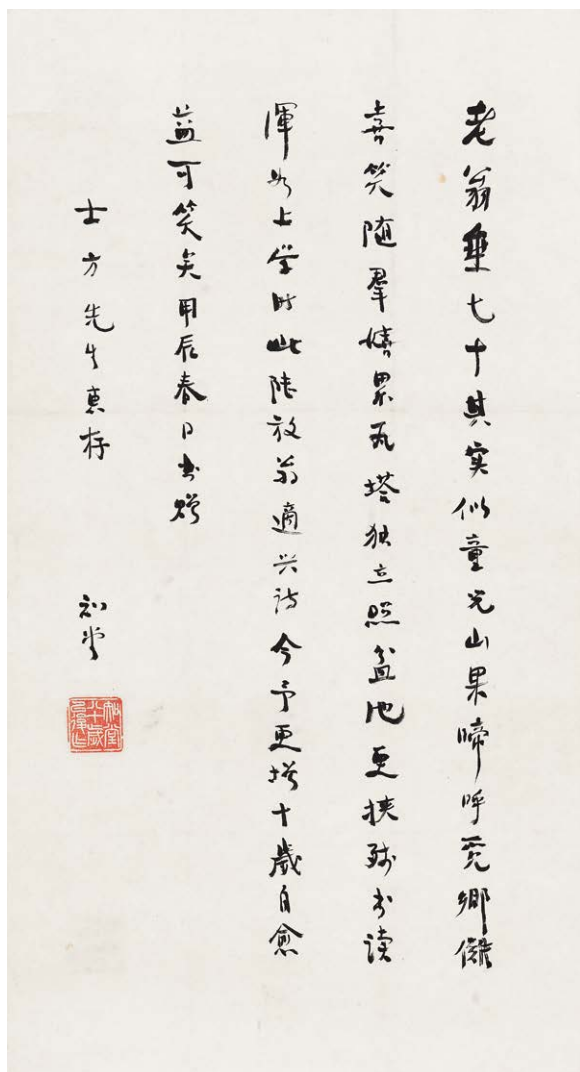 老翁垂七十其实似童兒山果啼呼觅鄉儺
喜笑随羣嬉累瓦塔独立照盆池更挟残书读
渾如上学时此陸放翁適兴诗今予更增十歲自愈
益可笑矣甲辰春日书赠
士方先生惠存
知堂